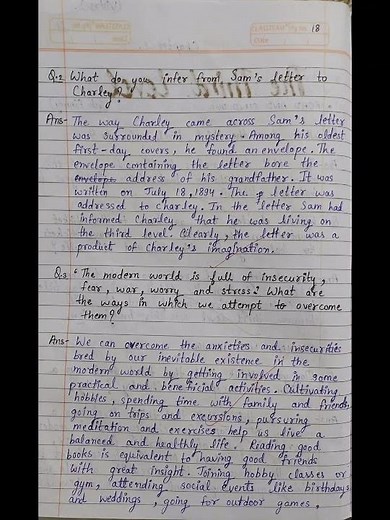 18
Q.2 What do you infer from Sam's letter to
Charley?
Ans- The way Charley came across Sam's letter
was surrounded in mystery. Among his oldest
first-day covers, he found an envelope. The
envelope containing the letter bore the
address of his grandfather. It was
written on July 18, 1894. The letter was
addressed to Charley. In the letter Sam had
informed Charley that he was living on
the third level. Clearly, the letter was a
product of Charley's imagination.
Q.3 'The modern world is full of insecurity,
fear, war, worry and stress? What are
the ways in which we attempt to overcome
them?
Ans- We can overcome the anxieties and insecurities
bred by our inevitable existence in the
modern world by getting involved in some
practical and beneficial activities. Cultivating
hobbies, spending time with family and friends,
going on trips and excursions, pursuring
meditation and exercises help us live a
balanced and healthly life. Reading good
books is equivalent to having good friends
with great insight. Joining hobby classes or
gym, attending social events like birthdays
and weddings, going for outdoor games,